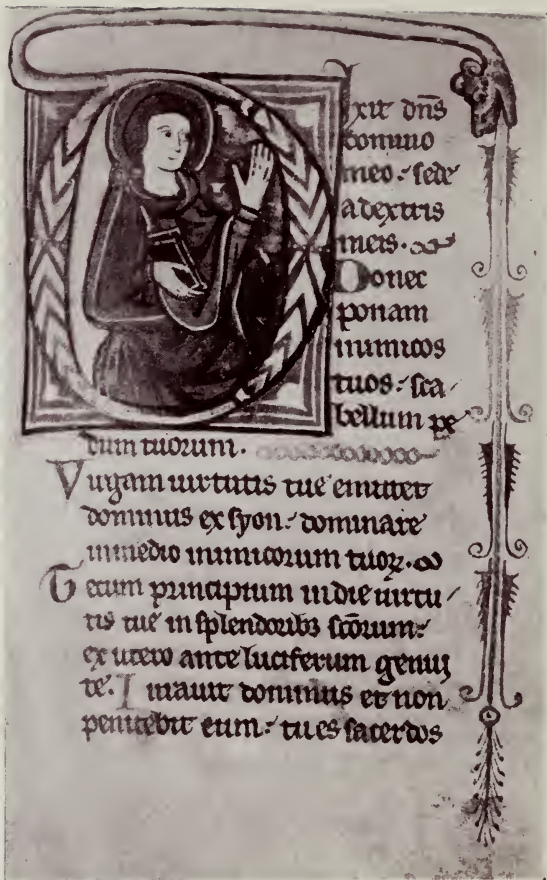 Dixit dns̄
domino
meo : sede
a dextris
meis.
Donec
ponam
inimicos
tuos : sca
bellum pe
dum tuorum.
Uirgam uirtutis tue emittet
dominus ex syon : dominare
inmedio inimicorum tuoꝝ.
Tecum principium in die uirtu
tis tue in splendoribꝫ scōrum :
ex utero ante luciferum genui
te. Iurauit dominus et non
penitebit eum : tu es sacerdos